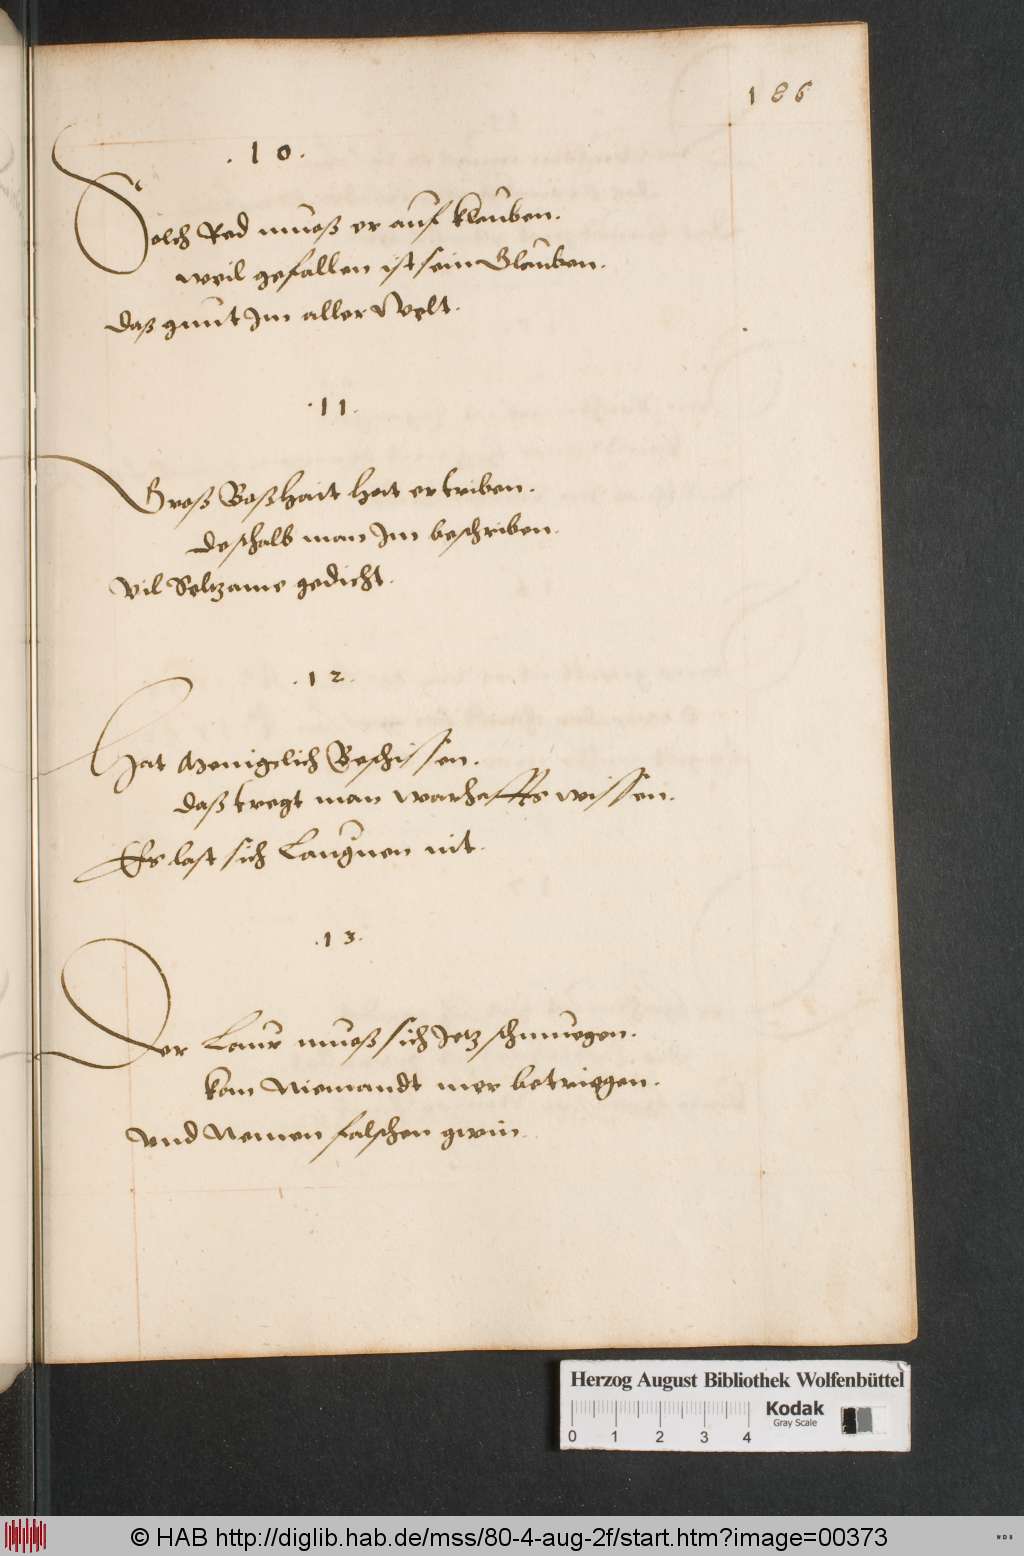 186
.10.
Solch Red mueß er auf klauben.
weil gefallen ist sein Glauben.
daß gunt Im aller Welt.
.11.
Groß Boßhait hat er triben.
deshalb man Im beschriben.
Vil Seltzame gedicht.
.12.
Hat Menigclich Beschissen.
daß tregt man warhaffts wissen.
Es last sich Laugnen nit.
.13.
Der Laur mueß sich Jetz schmuegen.
kan Niemandt mer betriegen.
Vnd Nemen falschen gwin.
Herzog August Bibliothek Wolfenbüttel
Kodak
Gray Scale
0 1 2 3 4
© HAB http://diglib.hab.de/mss/80-4-aug-2f/start.htm?image=00373